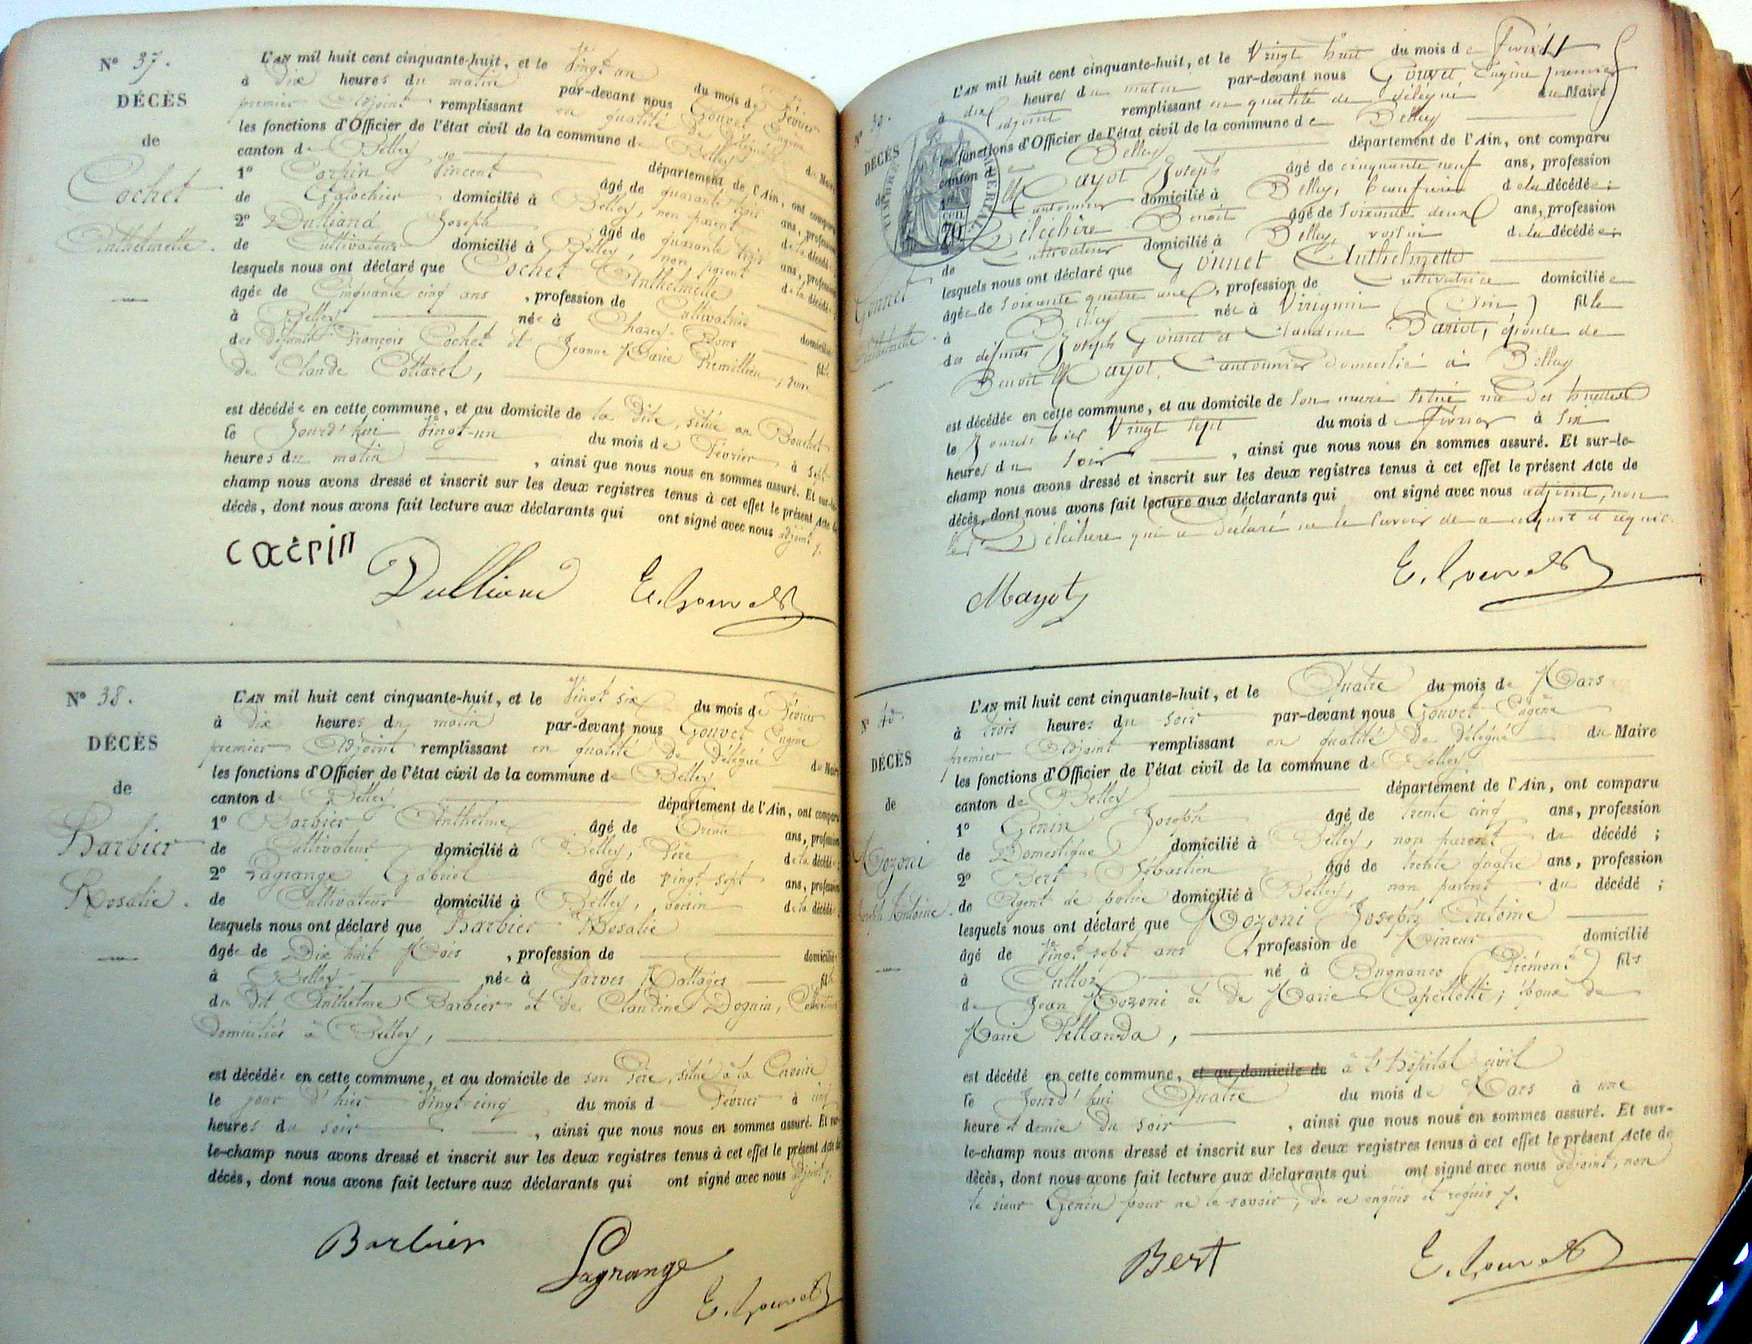 N° 37.
DÉCÈS
de
Cochet
Anthelmette.
L'AN mil huit cent cinquante-huit, et le Vingt un du mois de Février
à Dix heures du matin par-devant nous Gouvet Eugène
premier Adjoint remplissant en qualité de Délégué du Maire
les fonctions d'Officier de l'état civil de la commune de Belley
canton de Belley département de l'Ain, ont comparu
1° Vincent âgé de quarante trois ans, profession
de Galochier domicilié à Belley, non parent de la décédée
2° Dulliand Joseph âgé de quarante trois ans, profession
de Cultivateur domicilié à Belley, non parent de la décédée
lesquels nous ont déclaré que Cochet Anthelmette
âgée de Cinquante cinq ans, profession de Cultivatrice
à Belley née à Chazey-Bons domiciliée
des défunts François Cochet et Jeanne Marie Premillieu, fille
de Claude Cottarel,
est décédée en cette commune, et au domicile de la Dite, situé au Bouchet
le Jourd'hui Vingt-un du mois de Février à Sept
heures du matin, ainsi que nous nous en sommes assuré. Et sur-le-
champ nous avons dressé et inscrit sur les deux registres tenus à cet effet le présent Acte de
décès, dont nous avons fait lecture aux déclarants qui ont signé avec nous adjoint
Dulliand E. Gouvet
N° 38.
DÉCÈS
de
Barbier
Rosalie.
L'AN mil huit cent cinquante-huit, et le Vingt six du mois de Février
à Dix heures du matin par-devant nous Gouvet Eugène
premier Adjoint remplissant en qualité de Délégué du Maire
les fonctions d'Officier de l'état civil de la commune de Belley
canton de Belley département de l'Ain, ont comparu
1° Barbier Anthelme âgé de Trente ans, profession
de Cultivateur domicilié à Belley, Père de la décédée
2° Lagrange Gabriel âgé de vingt sept ans, profession
de Cultivateur domicilié à Belley, voisin de la décédée
lesquels nous ont déclaré que Barbier Rosalie
âgée de Dix huit Mois, profession de domiciliée
à Belley née à Parves fille
du dit Anthelme Barbier et de Claudine Doguin,
domiciliés à Belley,
est décédée en cette commune, et au domicile de son Père, situé à la
le jour d'hier Vingt cinq du mois de Février à
heures du soir, ainsi que nous nous en sommes assuré. Et sur-
le-champ nous avons dressé et inscrit sur les deux registres tenus à cet effet le présent Acte de
décès, dont nous avons fait lecture aux déclarants qui ont signé avec nous adjoint
Barbier Lagrange E. Gouvet
N°
DÉCÈS
de
Gonnet
Anthelmette.
L'AN mil huit cent cinquante-huit, et le Vingt huit du mois de Février
à dix heures du matin par-devant nous Gouvet, Eugène premier
adjoint remplissant en qualité de délégué du Maire
les fonctions d'Officier de l'état civil de la commune de Belley
canton de Belley département de l'Ain, ont comparu
1° Mayot Joseph âgé de cinquante neuf ans, profession
de Cantonnier domicilié à Belley, beaufrère de la décédée;
2° Benoit âgé de soixante deux ans, profession
de Cultivateur domicilié à Belley, voisin de la décédée;
lesquels nous ont déclaré que Gonnet Anthelmette
âgée de soixante quatre ans, profession de Cultivatrice domiciliée
à Belley née à Virignin (Ain) fille
des défunts Joseph Gonnet et Claudine épouse de
Benoit Mayot, Cantonnier domicilié à Belley
est décédée en cette commune, et au domicile de son mari situé rue des
le Jour d'hier Vingt sept du mois de Février à Six
heures du soir, ainsi que nous nous en sommes assuré. Et sur-le-
champ nous avons dressé et inscrit sur les deux registres tenus à cet effet le présent Acte de
décès, dont nous avons fait lecture aux déclarants qui ont signé avec nous adjoint, non
qui a déclaré ne le savoir de ce enquis et requis.
Mayot E. Gouvet
N° 40.
DÉCÈS
de
Mozoni
Joseph Antoine.
L'AN mil huit cent cinquante-huit, et le Quatre du mois de Mars
à trois heures du soir par-devant nous Gouvet Eugène
premier Adjoint remplissant en qualité de délégué du Maire
les fonctions d'Officier de l'état civil de la commune de Belley
canton de Belley département de l'Ain, ont comparu
1° Genin Joseph âgé de trente cinq ans, profession
de Domestique domicilié à Belley, non parent du décédé;
2° Bert Sébastien âgé de trente quatre ans, profession
de Agent de police domicilié à Belley, non parent du décédé;
lesquels nous ont déclaré que Mozoni Joseph Antoine
âgé de Vingt sept ans, profession de Mineur domicilié
à Culloz né à Bugnanco (Piémont) fils
de Jean Mozoni et de Marie Capelletti; époux de
Marie Pellanda,
est décédé en cette commune, et au domicile de à l'hôpital civil
le Jourd'hui Quatre du mois de Mars à une
heure et demie du soir, ainsi que nous nous en sommes assuré. Et sur-
le-champ nous avons dressé et inscrit sur les deux registres tenus à cet effet le présent Acte de
décès, dont nous avons fait lecture aux déclarants qui ont signé avec nous adjoint, non
le sieur Genin pour ne le savoir, de ce enquis et requis.
Bert E. Gouvet